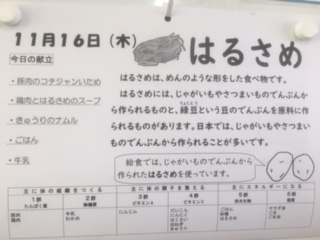 11月16日（木）
はるさめ
今日の献立
・豚肉のコチジャンいため
・鶏肉とはるさめのスープ
・きゅうりのナムル
・ごはん
・牛乳
はるさめは、めんのような形をした食べ物です。
はるさめには、じゃがいもやさつまいものでんぷん
から作られるものと、緑豆という豆のでんぷんを原料に作
られるものがあります。日本では、じゃがいもやさつまい
ものでんぷんから作られることが多いです。
りょくとう
給食では、じゃがいものでんぷんから
作られたはるさめを使っています。
主に体の組織をつくる
主に体の調子を整える
主にエネルギーになる
1群 2群 3群 4群 5群 6群
たんぱく質 無機質 ビタミンA ビタミンC 炭水化物 脂質
豚肉
鶏肉
牛乳
わかめ
にんじん
ごはん
砂糖
はるさめ